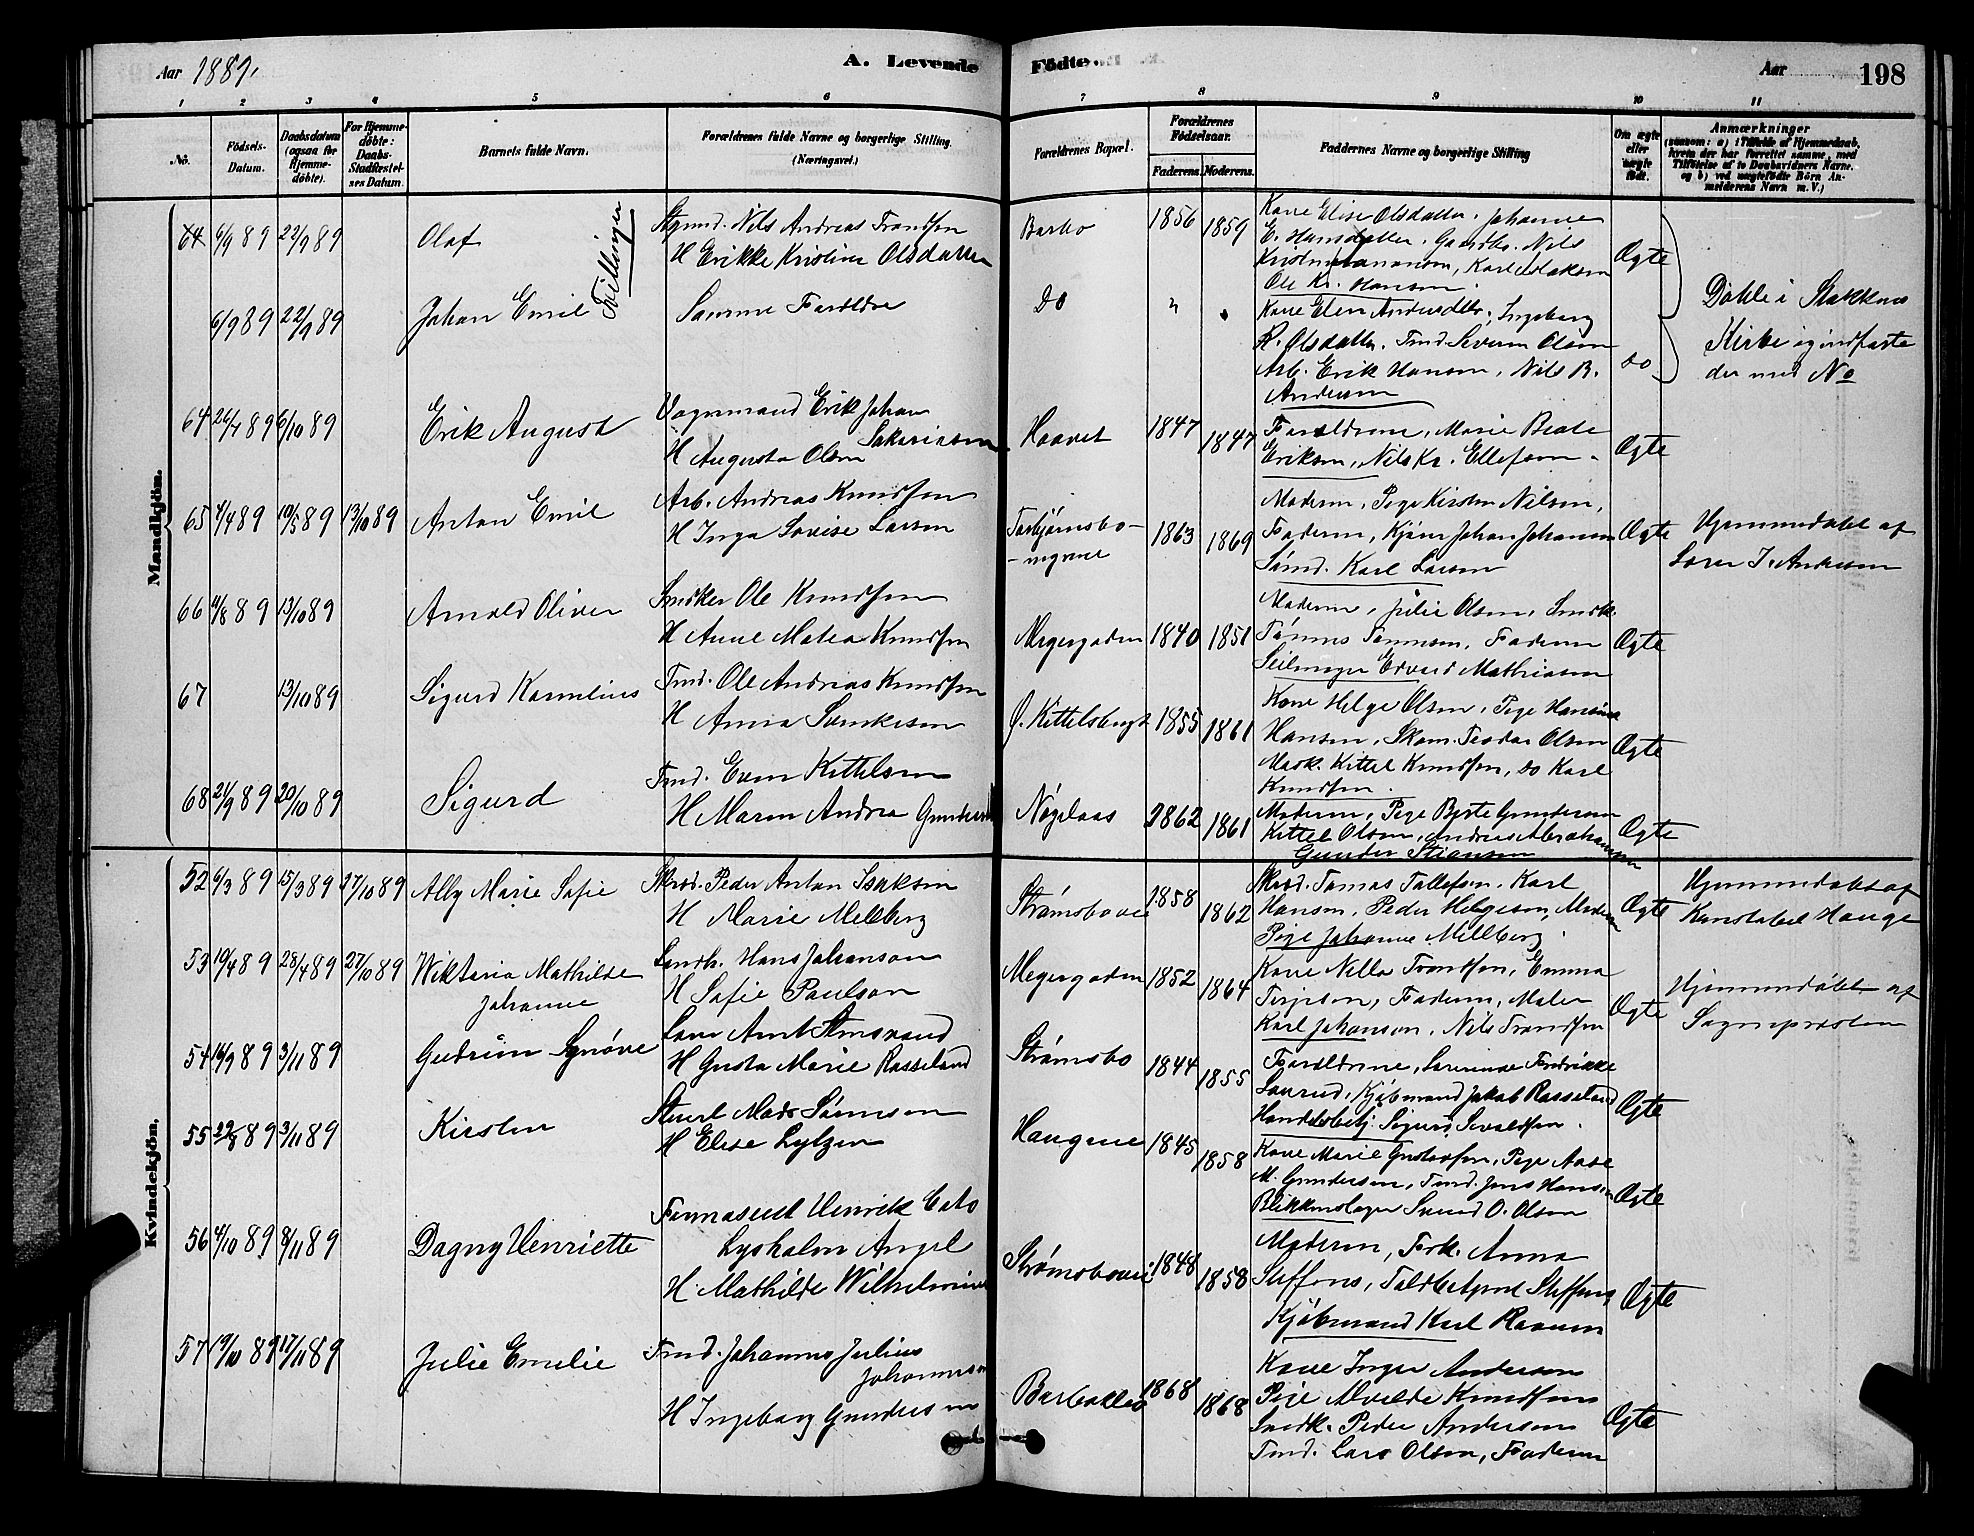 Aar 1889.
A. Levende Födte.
Aar
198
1 2 3 4 5 6 7 8 9 10 11
No.
Födsels-Datum.
Daabsdatum (ogsaa for Hjemme-döbte).
For Hjemme-döbte: Daabs-Stadfæstel-ses Datum.
Barnets fulde Navn.
Forældrenes fulde Navne og borgerlige Stilling (Næringsvei.)
Forældrenes Bopæl.
Forældrenes Födselsaar.
Faderens. Moderens.
Faddernes Navne og borgerlige Stilling
Om ægte eller uægte födt.
Anmærkninger
(saasom: a) i Tilfælde af Hjemmedaab, hvem der har forrettet samme, med Tilföielse af to Daabsvidners Navne. og b) ved uægtefödte Börn An-melderens Navn m. V.)
Mandkjön.
64 6/9 89 22/9 89 Olaf Tvillinger
Nils Andreas
H Erikke Kristine Olsdatter
Barbo 1856 1859
Kone Elise Olsdatter, Johanne
E. Hansdatter, Gaardbr. Nils
Ole Kr. Hansen.
Ægte
6/9 89 22/9 89 Johan Emil
Samme Forældre
Do "
R. Olsdatter, Tmd. Severin Olsen
Arb. Erik Hansen, Nils B.
Andersen
do
Döbte i Stokkens
Kirke og indførte
der med No
64 26/7 89 6/10 89 Erik August
Vognmand Erik Johan
Sakariasen
H Augusta Olsen
Haavet 1847 1847
Forældrene, Marie Beate
Eriksen, Nils Kr. Ellefsen.
Ægte
65 4/4 89 10/5 89 13/10 89 Anton Emil
Arb. Andreas Knudsen
H Inga Lovise Larsen
Torbjørnsbo-
1863 1869
Moderen, Pige Kirsten Nilsen,
Faderen, Johan Johansen
Karl Larsen
Ægte
Hjemmedøbt af
Andersen
66 4/8 89 13/10 89 Arnold Oliver
Snedker Ole Knudsen
H Anne Matea Knudsen
Meyergaden 1840 1851
Moderen, Julie Olsen, Snedk.
Faderen
Seilmager Edvard Mathiasen
Ægte
67 13/10 89 Sigurd Kornelius
Tmd. Ole Andreas Knudsen
H Anna
Ø. Kittelsbugt 1855 1861
Kone Helge Olsen, Pige
Hansen, Teodor Olsen
Kittel Knudsen, do Karl
Knudsen.
Ægte
68 21/9 89 20/10 89 Sigurd
Tmd. Even Kittelsen
H Maren Andrea
1862 1861
Moderen, Pige Gundersen
Kittel Olsen, Andreas Abrahamsen
Gunder Stiansen
Ægte
Kvindekjön.
52 6/3 89 15/3 89 27/10 89 Ally Marie Sofie
Skræd. Peder Anton Isaksen
H Marie Mellberg
Strømsboveien 1858 1862
Skræd. Tomas Tollefsen, Karl
Hansen, Peder Helgesen, Moderen
Pige Johanne Mellberg.
Ægte
Hjemmedøbt af
Konstabel Hauge
53 19/4 89 28/4 89 27/10 89 Wiktoria Mathilde
Johanne
Hans Johansen
H Sofie Paulsen
Meyergaden 1852 1864
Kone Nella Trondsen, Emma
Terjesen, Faderen, Maler
Karl Johansen, Nils Trondsen
Ægte
Hjemmedøbt af
Sognepresten
54 16/9 89 3/11 89 Gudrun Synøve
H Gusta Marie Rosseland
Strømsbo 1844 1855
Forældrene,
Kjøbmand Jakob Rosseland
Sigurd Sevaldsen.
Ægte
55 29/8 89 3/11 89 Kirsten
Mads Sørensen
H Elise Lytzen
Haugene 1845 1858
Kone Marie Gustavsen, Pige Aase
M. Gundersen, Tmd. Jens Hansen
Blikkenslager Svend O. Olsen
Ægte
56 4/10 89 8/11 89 Dagny Henriette
Farmaseut Henrik Cato
Lysholm Angel
H Mathilde Wilhelmine
Strømsboveien 1848 1858
Moderen, Frk. Anna
Steffens, Steffens,
Kjøbmand Karl
Ægte
57 19/10 89 17/11 89 Julie Emelie
Tmd. Johannes Julius
Johannesen
H Ingeborg Gundersen
1868 1868
Kone Inger Andersen
Pige Alvilde Knudsen
Snedk. Peder Andersen
Tmd. Lars Olsen, Faderen
Ægte